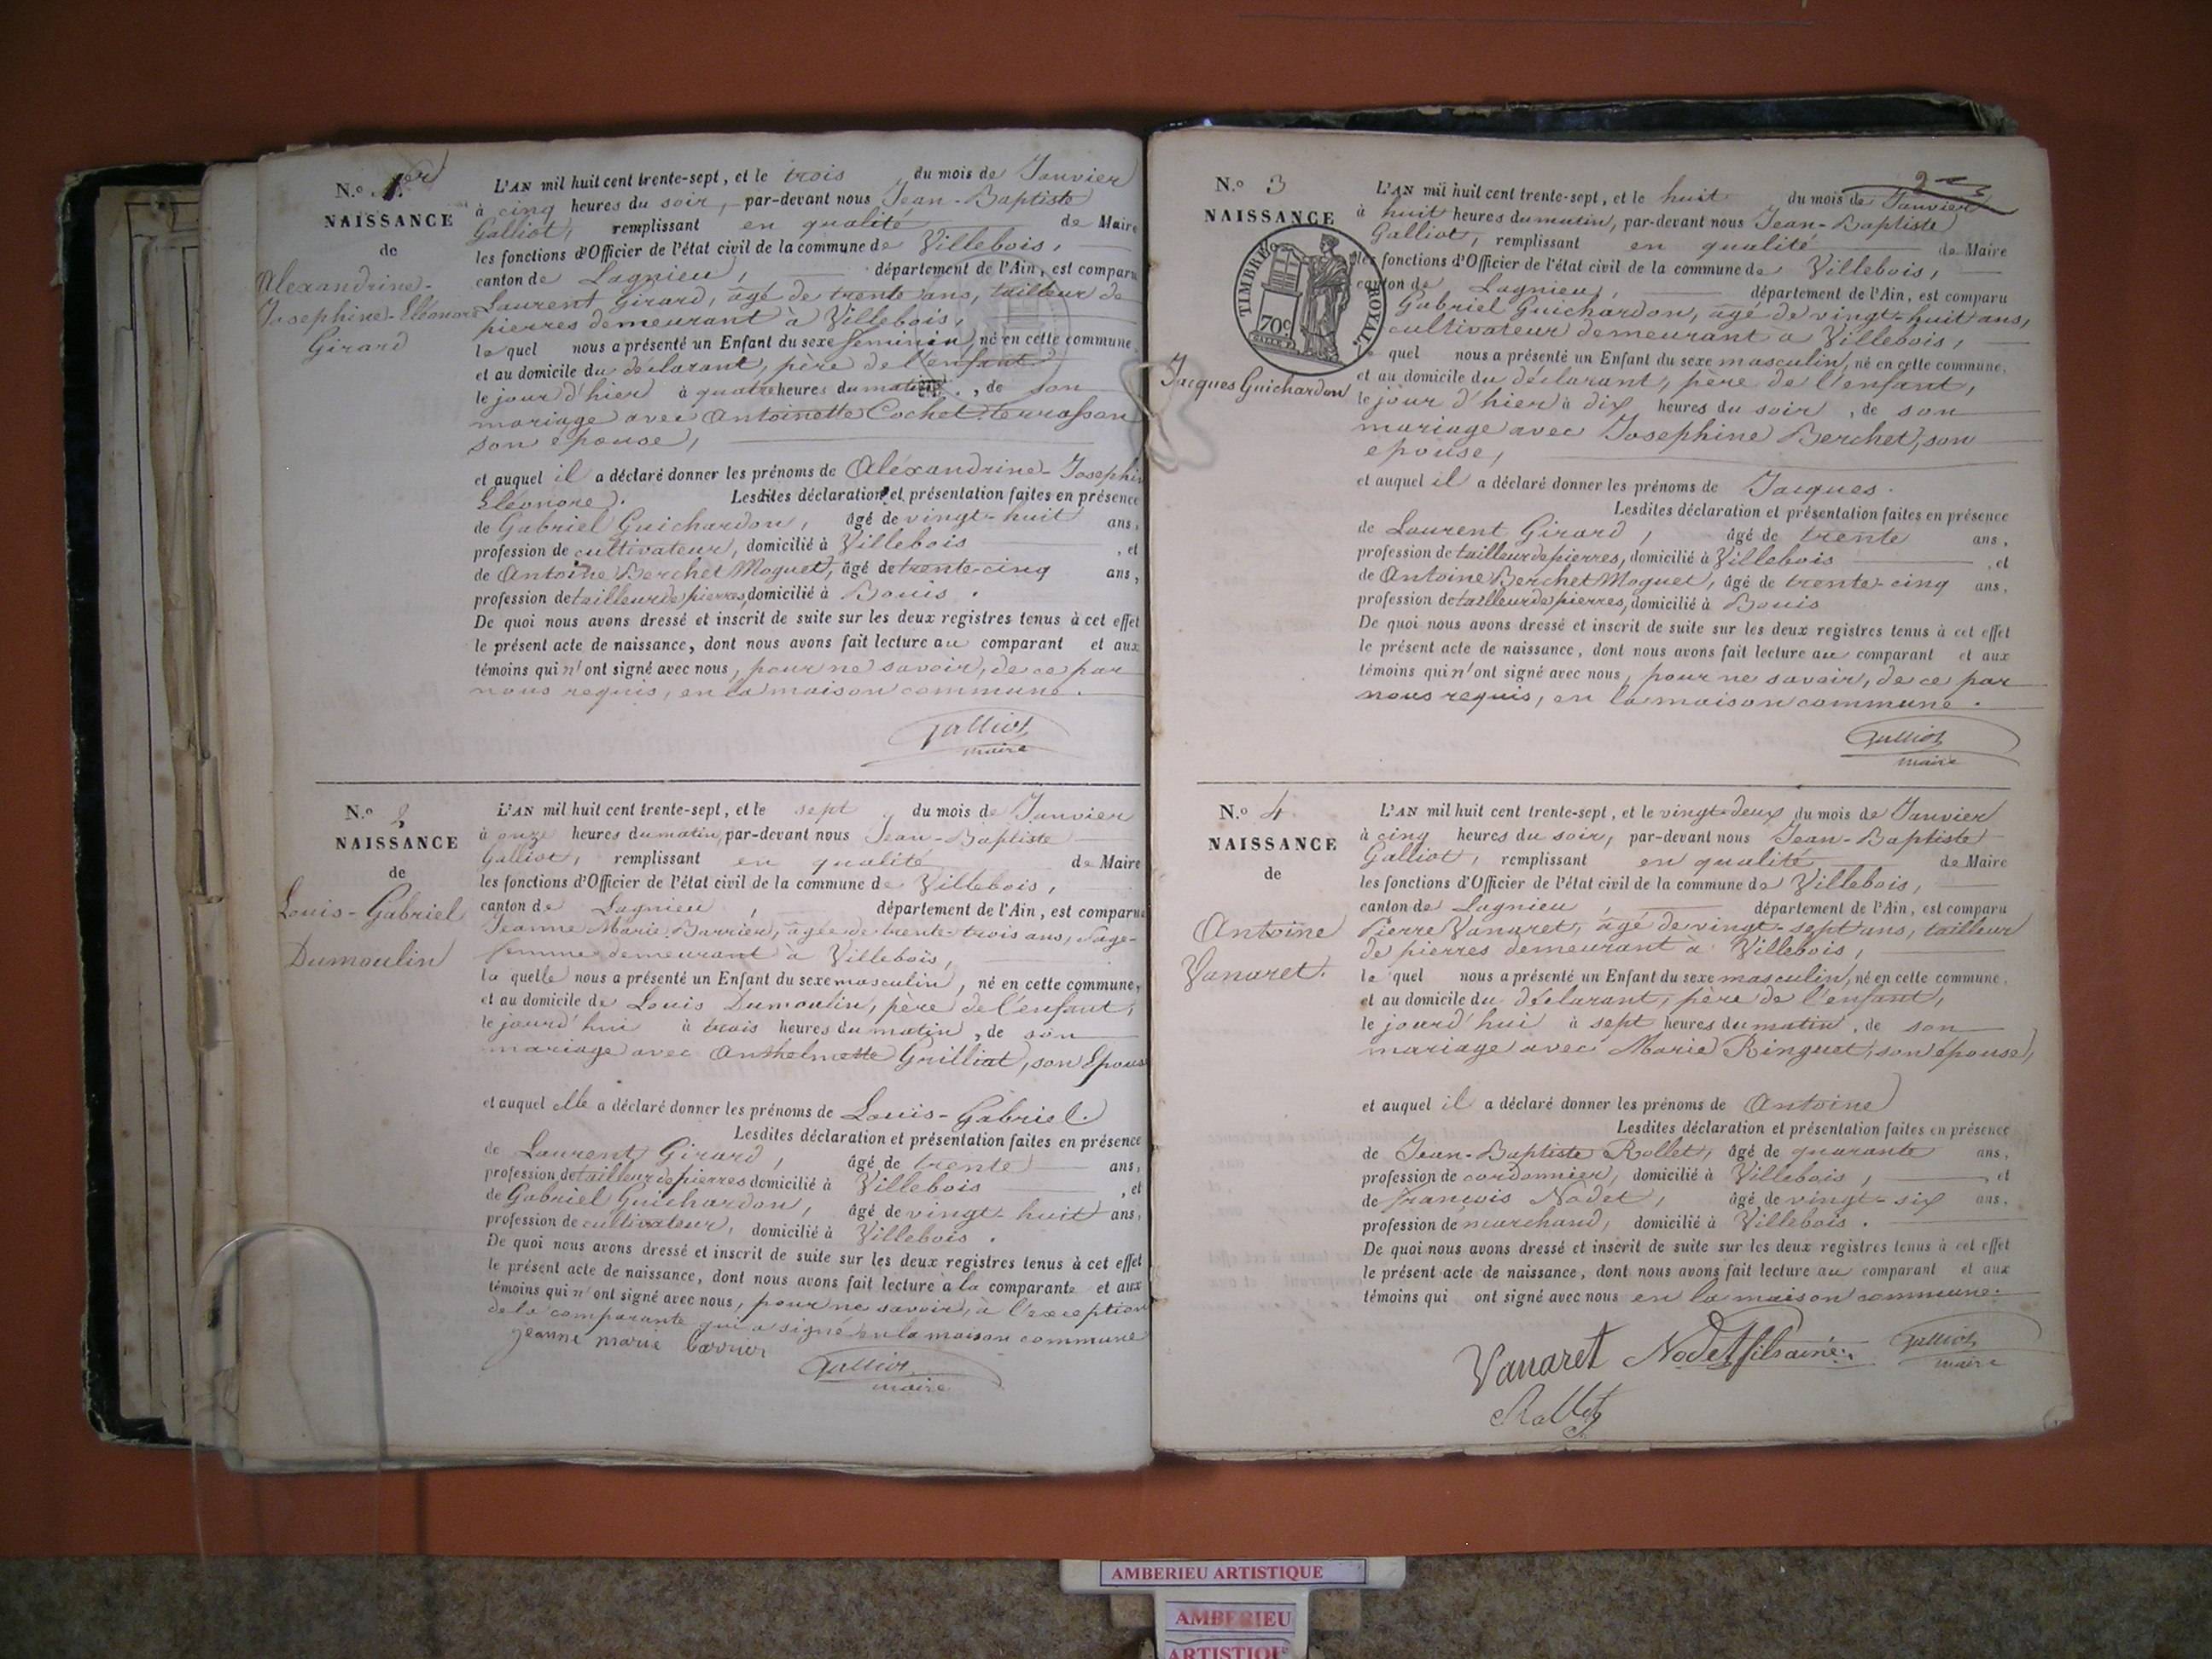 N.º 1.er
NAISSANCE
de
Alexandrine-
Josephine-Eléonore
Girard
L'AN mil huit cent trente-sept, et le trois du mois de Janvier
à cinq heures du soir, par-devant nous Jean-Baptiste
Galliot, remplissant en qualité de Maire
les fonctions d'Officier de l'état civil de la commune de Villebois,
canton de Lagnieu, département de l'Ain, est comparu
Laurent Girard, âgé de trente ans, tailleur de
pierres demeurant à Villebois,
le quel nous a présenté un Enfant du sexe féminin, né en cette commune
et au domicile du déclarant, père de l'enfant
le jour d'hier à quatre heures du matin, de son
mariage avec Antoinette Cochet
son épouse,
et auquel il a déclaré donner les prénoms de Aléxandrine-Josephin
Eléonore. Lesdites déclaration et présentation faites en présence
de Gabriel Guichardon, âgé de vingt-huit ans,
profession de cultivateur, domicilié à Villebois , et
de Antoine Berchet Moguet, âgé de trente-cinq ans,
profession de tailleur de pierres, domicilié à Bouis.
De quoi nous avons dressé et inscrit de suite sur les deux registres tenus à cet effet
le présent acte de naissance, dont nous avons fait lecture au comparant et aux
témoins qui n'ont signé avec nous, pour ne savoir, de ce par
nous requis, en la maison commune.
Galliot
maire
N.º 2
NAISSANCE
de
Louis-Gabriel
Dumoulin
L'AN mil huit cent trente-sept, et le sept du mois de Janvier
à onze heures du matin, par-devant nous Jean-Baptiste
Galliot, remplissant en qualité de Maire
les fonctions d'Officier de l'état civil de la commune de Villebois,
canton de Lagnieu, département de l'Ain, est comparue
Jeanne Marie Barrier, âgée de trente-trois ans, sage-
femme demeurant à Villebois,
la quelle nous a présenté un Enfant du sexe masculin, né en cette commune,
et au domicile de Louis Dumoulin, père de l'enfant,
le jourd'hui à trois heures du matin, de son
mariage avec Anthelmette Grilliat, son Epouse
et auquel elle a déclaré donner les prénoms de Louis-Gabriel.
Lesdites déclaration et présentation faites en présence
de Laurent Girard, âgé de trente ans,
profession de tailleur de pierres domicilié à Villebois , et
de Gabriel Guichardon, âgé de vingt-huit ans,
profession de cultivateur, domicilié à Villebois.
De quoi nous avons dressé et inscrit de suite sur les deux registres tenus à cet effet
le présent acte de naissance, dont nous avons fait lecture à la comparante et aux
témoins qui n'ont signé avec nous, pour ne savoir, à l'exception
de la comparante qui a signé en la maison commune
jeanne marie barrier
Galliot
maire
2
N.º 3
NAISSANCE
TIMBRE ROYAL
70c
Jacques Guichardon
L'AN mil huit cent trente-sept, et le huit du mois de Janvier
à huit heures du matin, par-devant nous Jean-Baptiste
Galliot, remplissant en qualité de Maire
les fonctions d'Officier de l'état civil de la commune de Villebois,
canton de Lagnieu, département de l'Ain, est comparu
Gabriel Guichardon, âgé de vingt-huit ans,
cultivateur demeurant à Villebois,
le quel nous a présenté un Enfant du sexe masculin, né en cette commune,
et au domicile du déclarant, père de l'enfant,
le jour d'hier à dix heures du soir, de son
mariage avec Josephine Berchet, son
epouse,
et auquel il a déclaré donner les prénoms de Jacques.
Lesdites déclaration et présentation faites en présence
de Laurent Girard, âgé de trente ans,
profession de tailleur de pierres, domicilié à Villebois , et
de Antoine Berchet Moguet, âgé de trente-cinq ans,
profession de tailleur de pierres, domicilié à Bouis
De quoi nous avons dressé et inscrit de suite sur les deux registres tenus à cet effet
le présent acte de naissance, dont nous avons fait lecture au comparant et aux
témoins qui n'ont signé avec nous, pour ne savoir, de ce par
nous requis, en la maison commune.
Galliot
maire
N.º 4
NAISSANCE
de
Antoine
Vanaret.
L'AN mil huit cent trente-sept, et le vingt-deux du mois de Janvier
à cinq heures du soir, par-devant nous Jean-Baptiste
Galliot, remplissant en qualité de Maire
les fonctions d'Officier de l'état civil de la commune de Villebois,
canton de Lagnieu, département de l'Ain, est comparu
Pierre Vanaret, âgé de vingt-sept ans, tailleur
de pierres demeurant à Villebois,
le quel nous a présenté un Enfant du sexe masculin, né en cette commune,
et au domicile du déclarant, père de l'enfant,
le jourd'hui à sept heures du matin, de son
mariage avec Marie Ringuet, son épouse,
et auquel il a déclaré donner les prénoms de Antoine
Lesdites déclaration et présentation faites en présence
de Jean-Baptiste Rollet, âgé de quarante ans,
profession de cordonnier, domicilié à Villebois, et
de françois Nodet, âgé de vingt-six ans,
profession de marchand, domicilié à Villebois.
De quoi nous avons dressé et inscrit de suite sur les deux registres tenus à cet effet
le présent acte de naissance, dont nous avons fait lecture au comparant et aux
témoins qui ont signé avec nous en la maison commune.
Vanaret Nodet fils ainé Galliot
maire
Rollet
AMBERIEU ARTISTIQUE
AMBERIEU
ARTISTIQUE